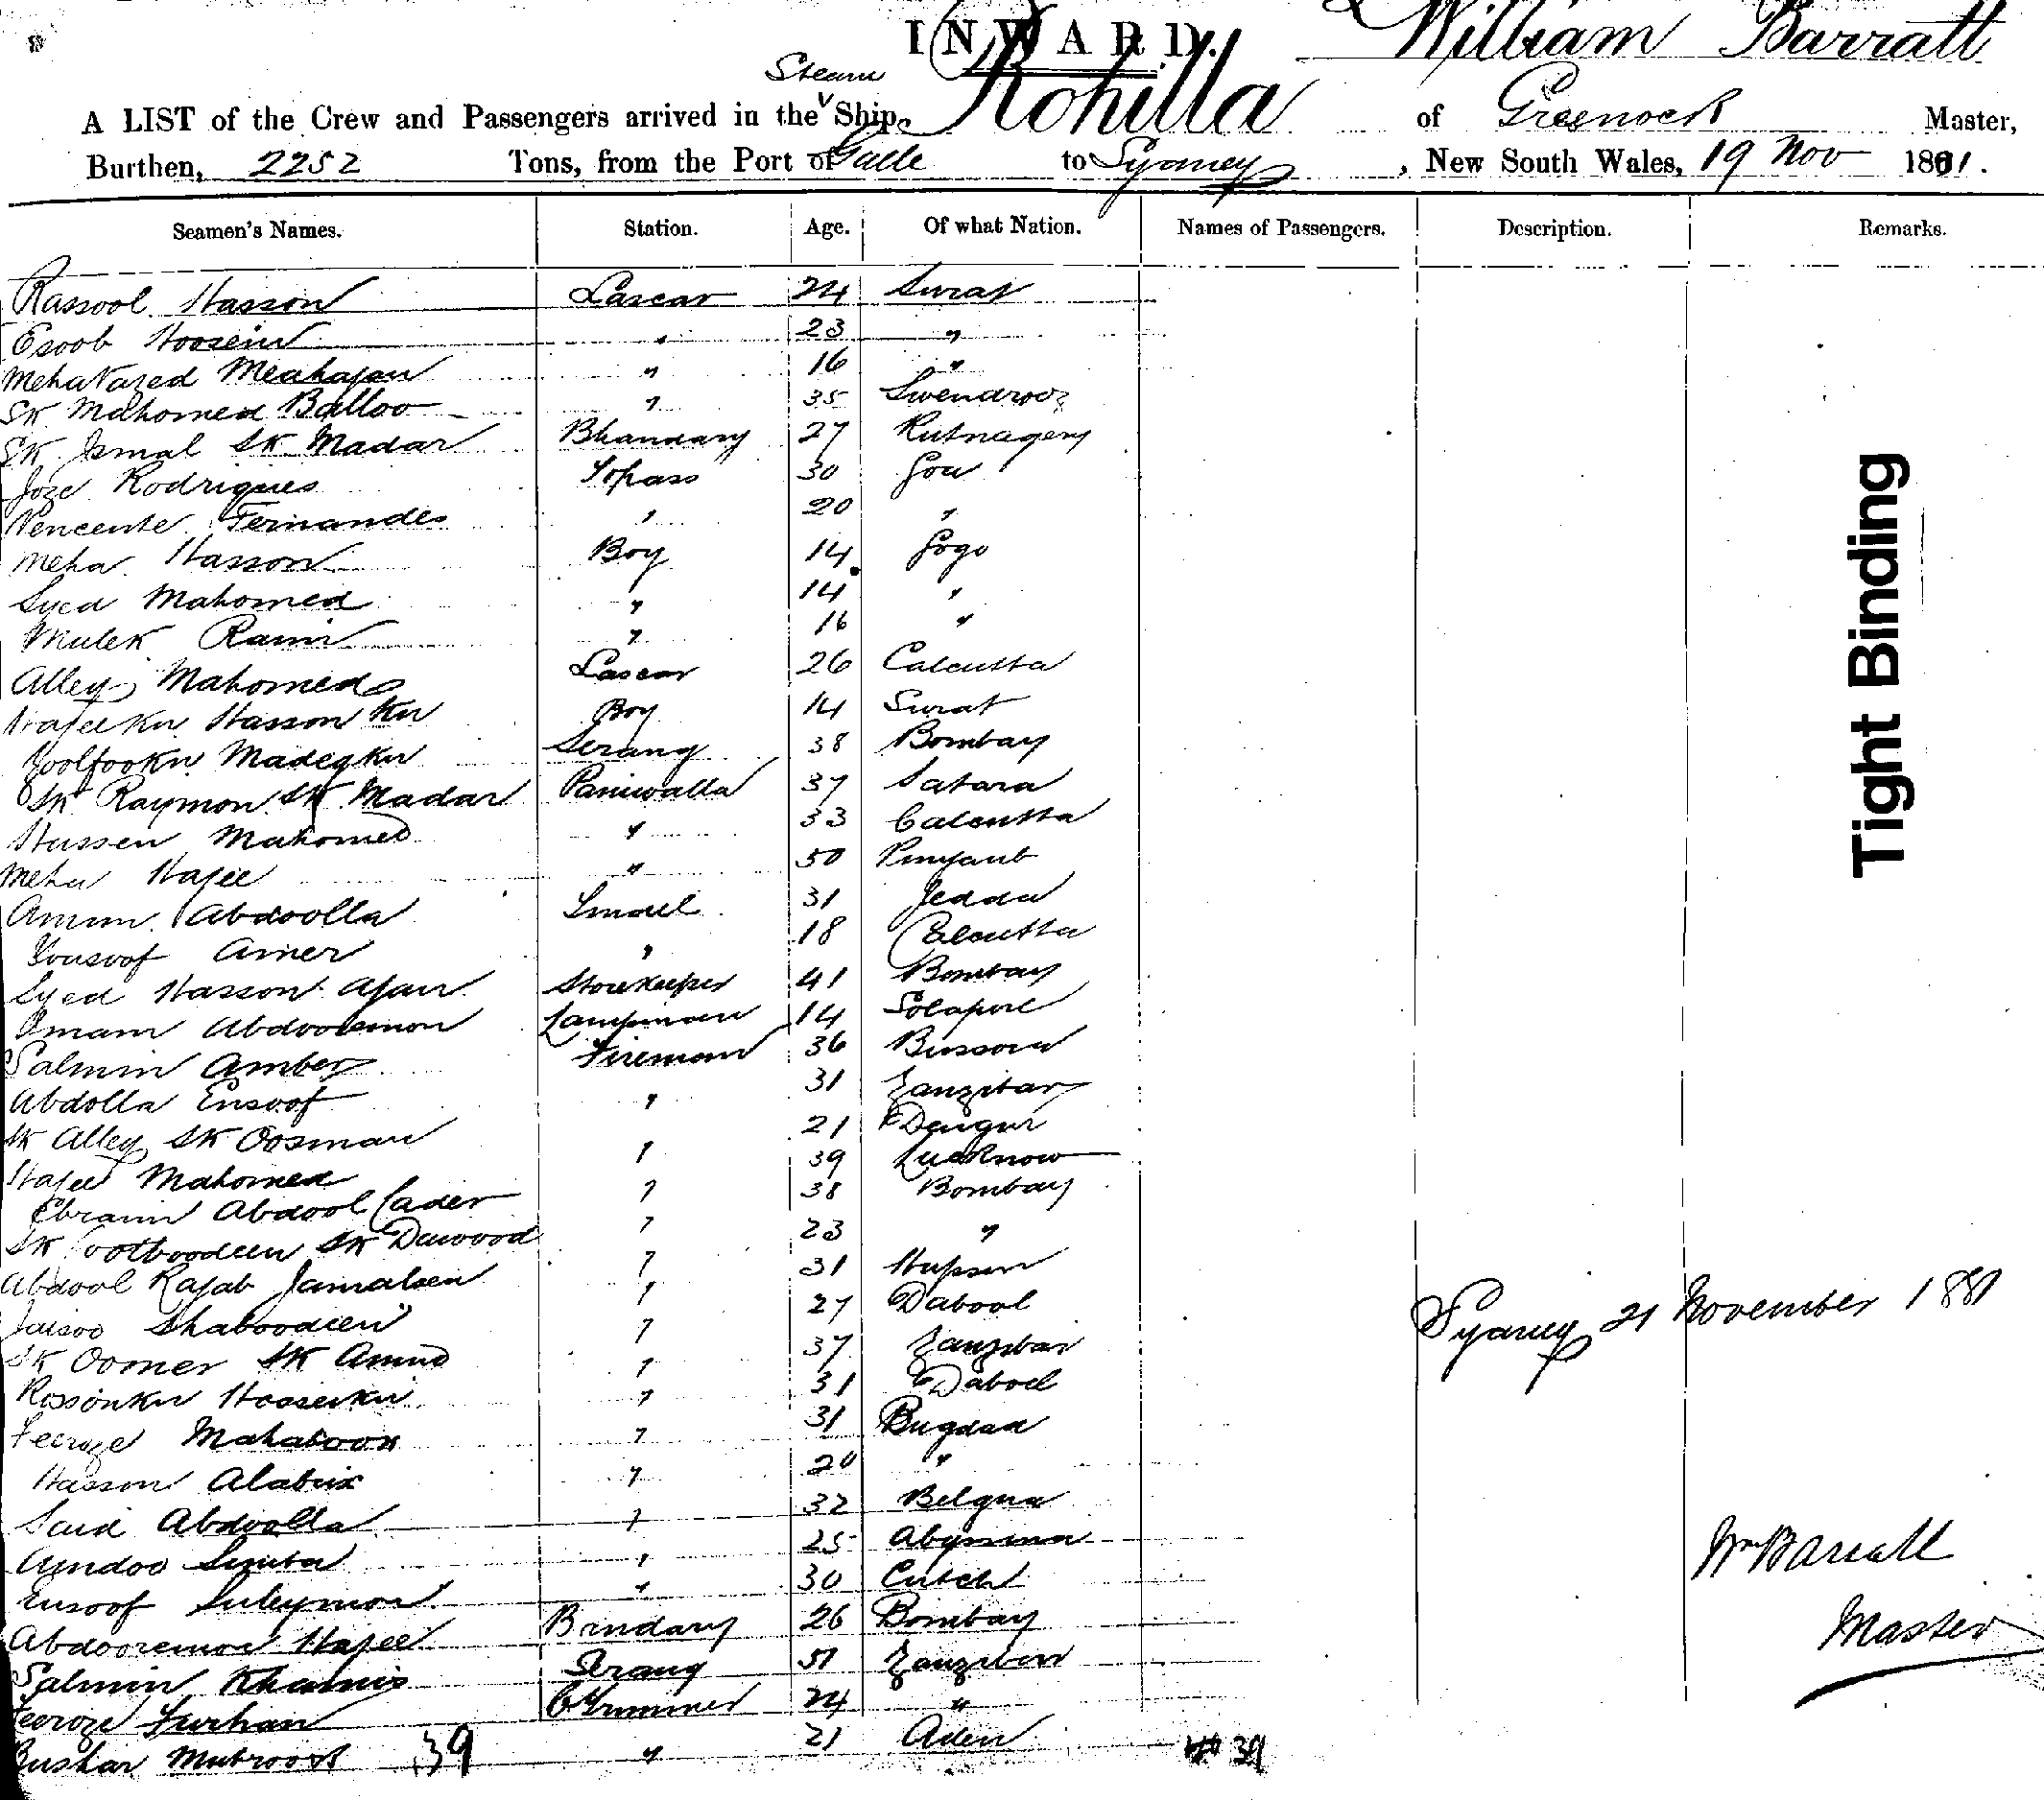 INWARD.
William Barratt
Steam
A LIST of the Crew and Passengers arrived in the Ship, Rohilla of Greenock Master,
Burthen, 2252 Tons, from the Port of Galle to Sydney, New South Wales, 19 Nov 1881.
Seamen's Names. Station. Age. Of what Nation. Names of Passengers. Description. Remarks.
Rassool Hasson Lascar 24 Surat
Esoob Hoosein " 23 "
Meha Meahajan " 16 "
SK Mahomed Balloo " 35
SK Ismal SK Madar Bhandary 27 Rutnagery
Joze Rodrigues Topass 30 Goa
Vencente Fernandes " 20 "
Meha Hasson Boy 14 Gogo
Syed Mahomed " 14 "
Mulek Ramir " 16 "
Alley Mahomed Lascar 26 Calcutta
Hasson Kn Boy 14 Surat
Madegkn Serang 38 Bombay
SK Raymon SK Madar Paniwalla 37 Satara
Hussen Mahomed " 33 Calcutta
Meha Hajee " 50 Punjaub
Amin Abdoolla 31 Jedda
Yousoof Amer " 18 Calcutta
Syed Hasson Ajan Storekeeper 41 Bombay
Imam Abdooremon Lampman 14 Solapure
Salmin Amber Fireman 36 Bussora
Abdolla Ensoof " 31 Zanzibar
SK Alley SK Oosman " 21
Hajee Mahomed " 39 Lucknow
Ebraim Abdool Cader " 38 Bombay
SK Cootboodeen SK Dawood " 23 "
Abdool Rajab Jamalsen " 31
Shaboodeen " 27 Dabool
SK Oomer SK Amed " 37 Zanzibar
Rossonkn Hoosenkn " 31 Dabool
Feeroze Mahaboob " 31 Bugdad
Hasson Alabux " 20 "
Said Abdoolla " 32
Amdoo " 25
Ensoof Suleymon " 30 Cutch
Abdooremon Hajee Bandary 26 Bombay
Salmin Khamis Serang 51 Zanzibar
Feeroze Furhan C Trimmer 24 "
Bushar Mubrook 39 " 21 Aden 39
Sydney 21 November 1881
Wm Barratt
Master
Tight Binding